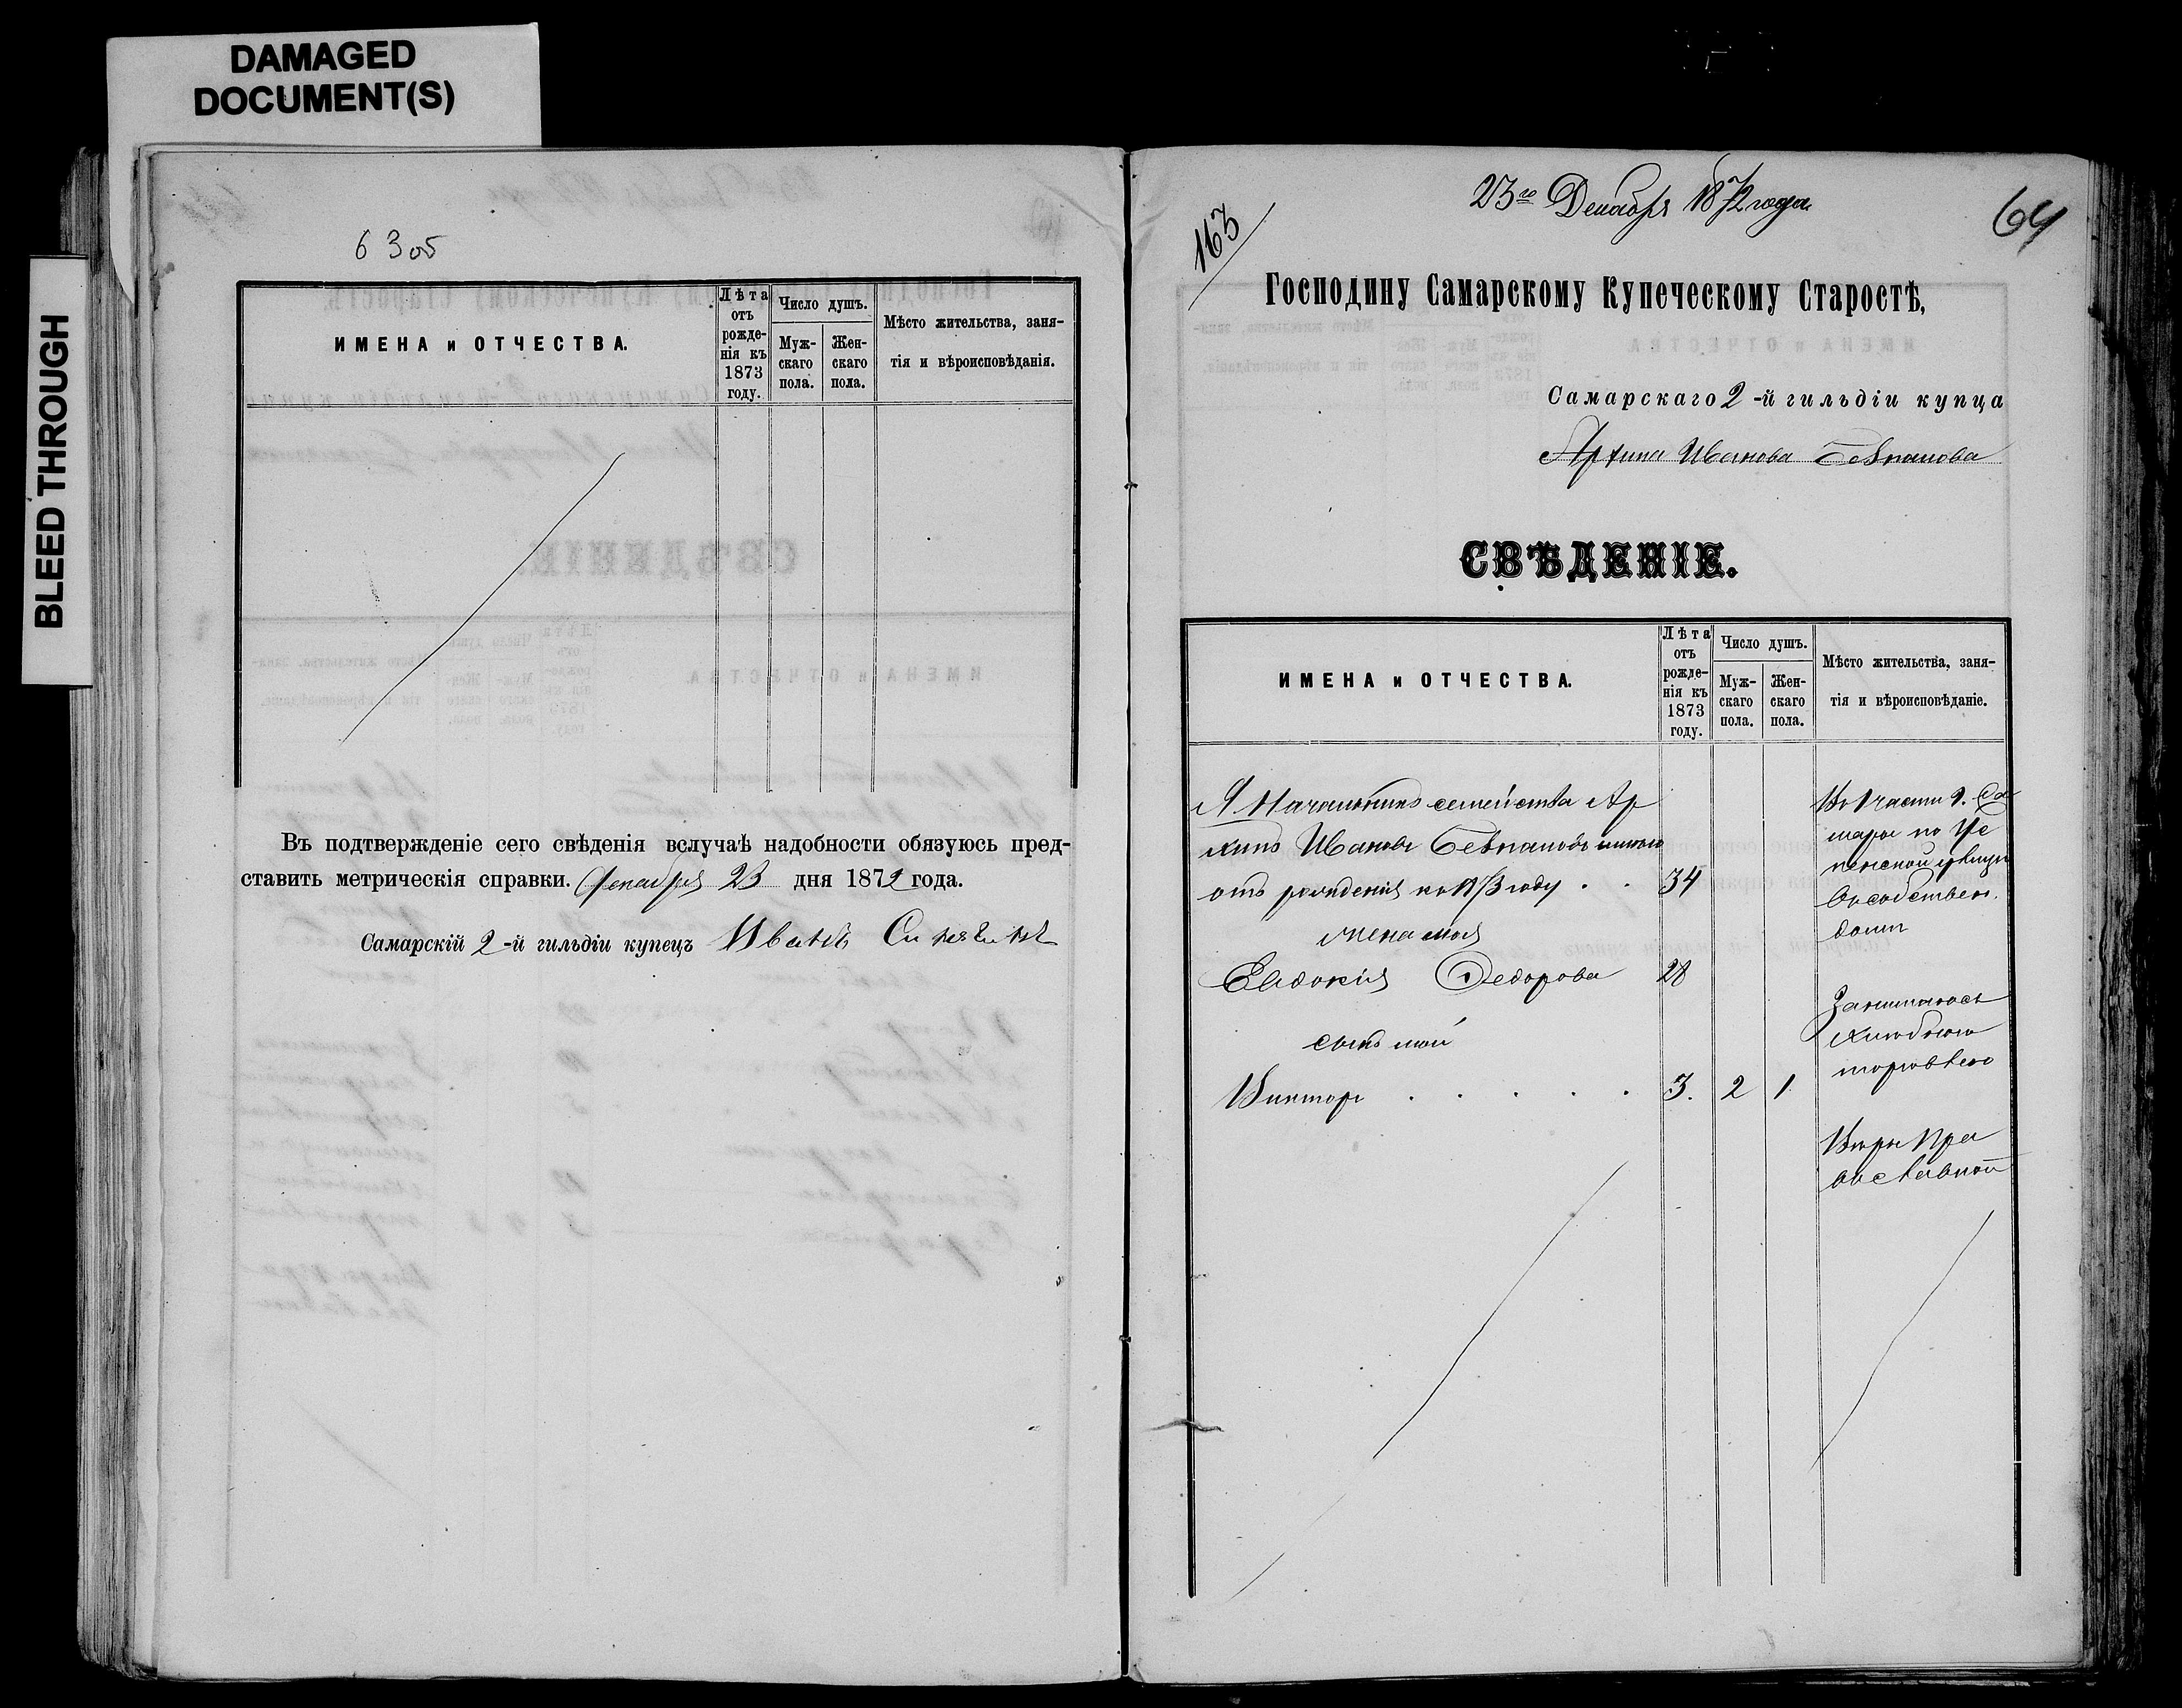 DAMAGED
DOCUMENT(S)
BLEED THROUGH
63 об
ИМЕНА и ОТЧЕСТВА.
Лѣта
отъ
рожде-
нія къ
1873
году.
Число душъ.
Муж-
скаго
пола.
Жен-
скаго
пола.
Мѣсто жительства, заня-
тія и вѣроисповѣданія.
Въ подтвержденіе сего свѣденія вслучаѣ надобности обязуюсь пред-
ставить метрическія справки. Декабря 23 дня 1872 года.
Самарскій 2-й гильдіи купецъ Иванъ
163
23го Декабря 1872 года
64
Господину Самарскому Купеческому Старостѣ,
Самарскаго 2-й гильдіи купца
Архипа Иванова
СВѢДЕНІЕ.
ИМЕНА и ОТЧЕСТВА.
Лѣта
отъ
рожде-
нія къ
1873
году.
Число душъ.
Муж-
скаго
пола.
Жен-
скаго
пола.
Мѣсто жительства, заня-
тія и вѣроисповѣданіе.
Я Начальникъ семейства Ар
хипъ Ивановъ имѣю
отъ рожденія къ 1873 году . . 34
жена моя
Евдокія Федорова 28
сынъ мой
Викторъ . . . . . 3. 2 1
Во 1 части г. Са
мары по Ус
пенской улицѣ
в собствен.
домѣ
Занимаюсь
хлѣбною
торговлею
Вѣры Пра
вославной